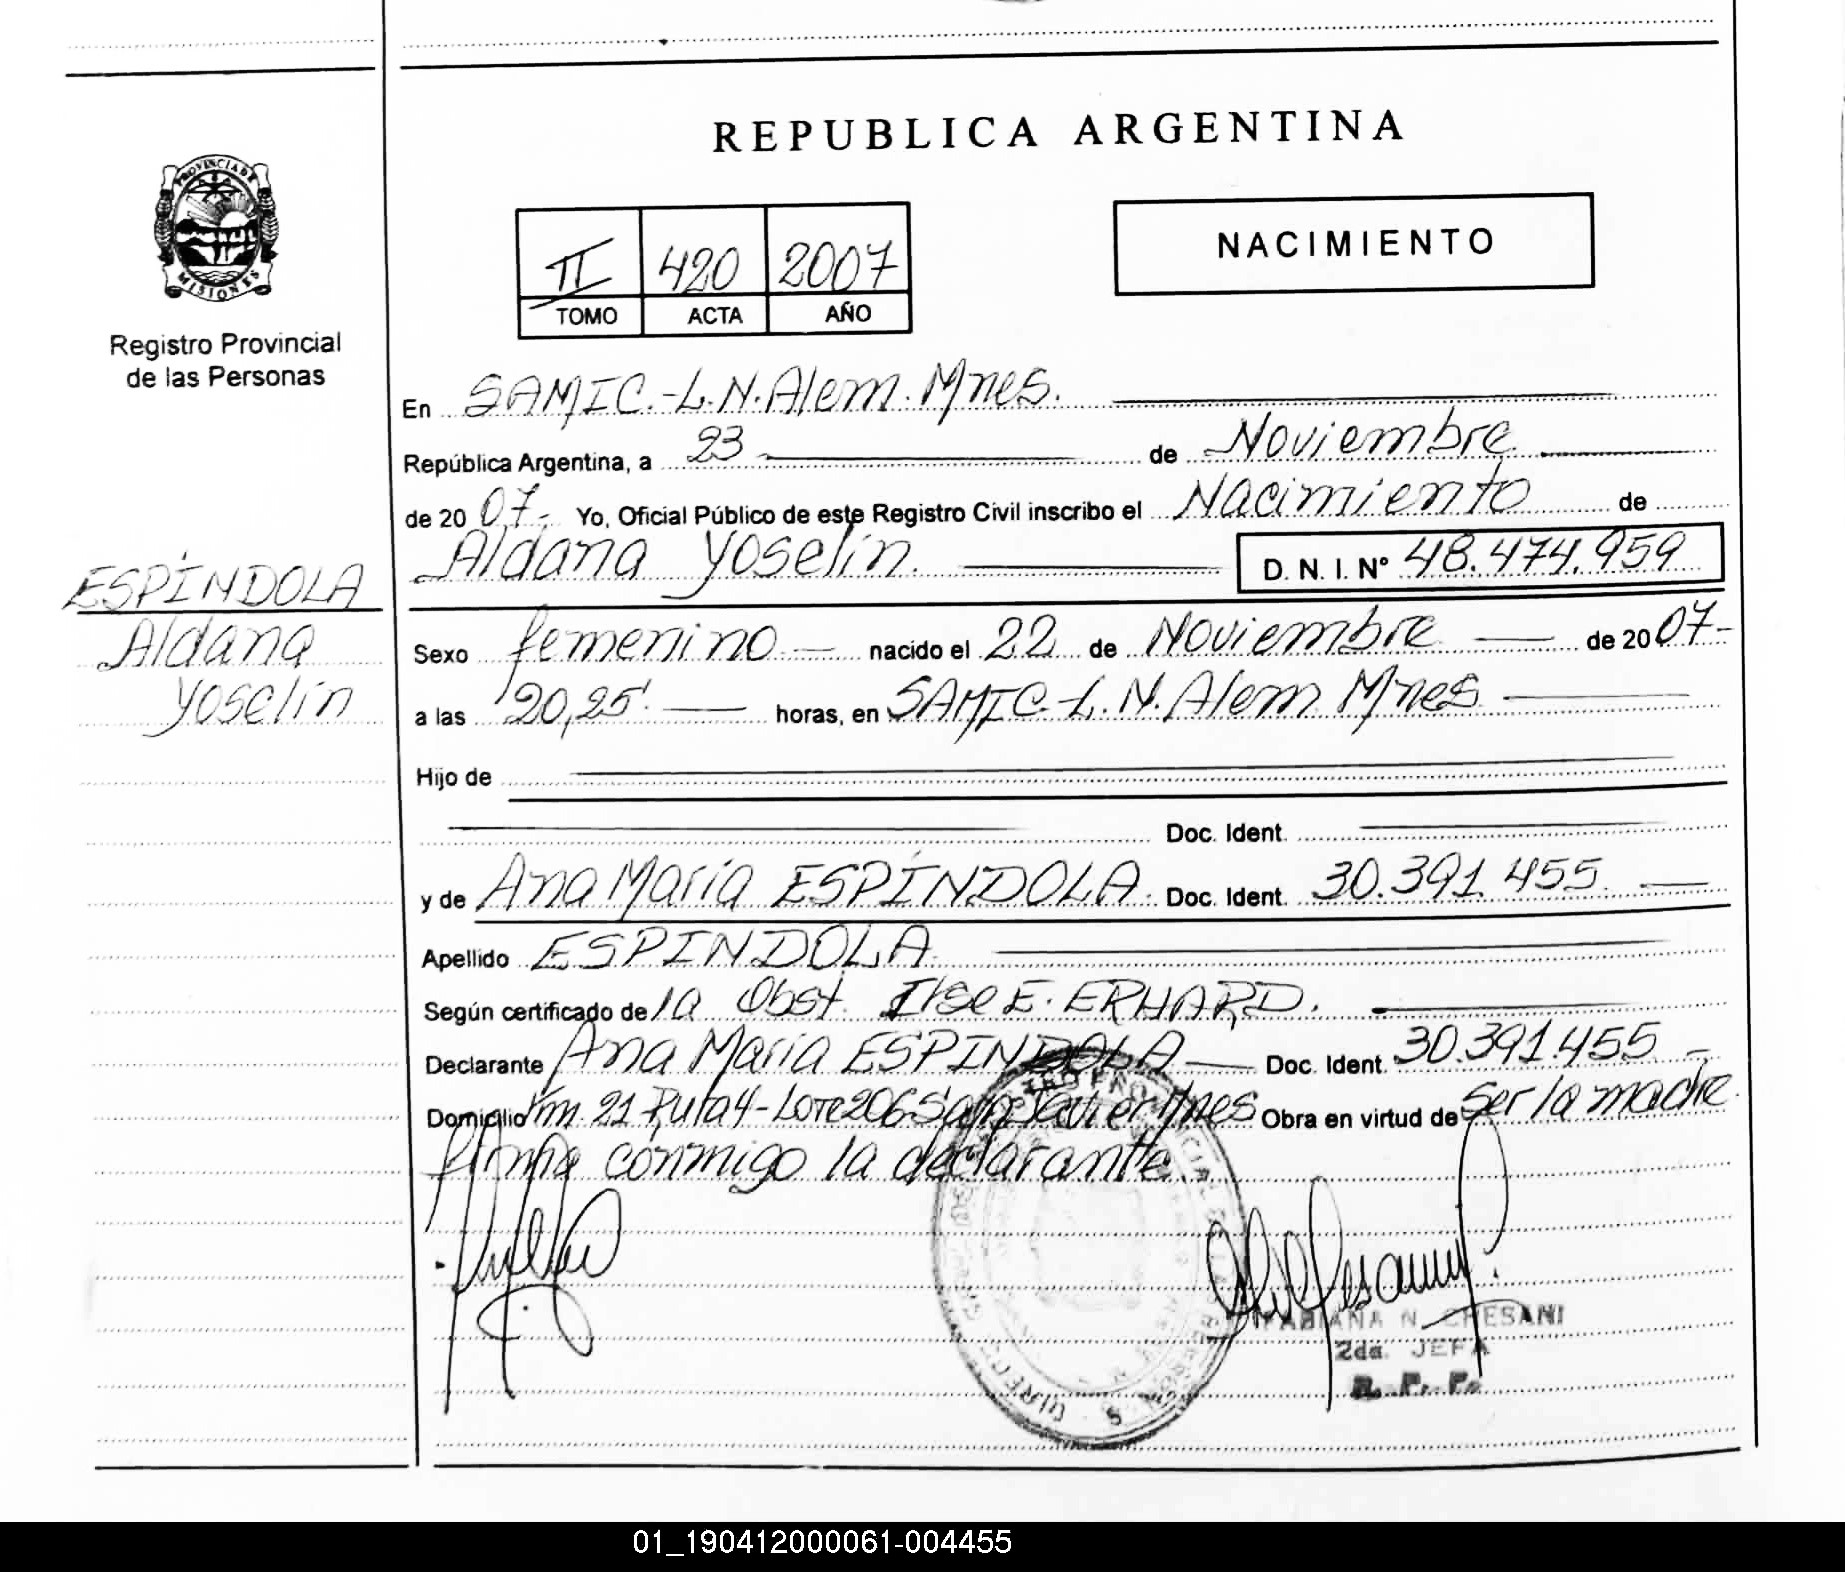 REPUBLICA ARGENTINA
PROVINCIA DE
MISIONES
Registro Provincial
de las Personas
II 420 2007
TOMO ACTA AÑO
NACIMIENTO
En SAMIC.-L.N.Alem.Mnes.
República Argentina, a 23 de Noviembre
de 2007.- Yo, Oficial Público de este Registro Civil inscribo el Nacimiento de
Aldana Yoselin. D. N. I. Nº 48.474.959
ESPÍNDOLA
Aldana
Yoselin
Sexo femenino nacido el 22 de Noviembre de 2007-
a las 20,25' horas, en SAMIC-L.N.Alem Mnes
Hijo de
Doc. Ident.
y de Ana María ESPÍNDOLA. Doc. Ident. 30.391.455.
Apellido ESPINDOLA.
Según certificado de la Obst. Ilse E. ERHARD.
Declarante Ana María ESPINDOLA Doc. Ident. 30.391.455 -
Domicilio Km. 21 Ruta 4-Lote 206 San Javier Mnes Obra en virtud de Ser la madre.
firma conmigo la declarante.
FABIANA N. CHESANI
2da. JEFA
R. P. P.
01_190412000061-004455